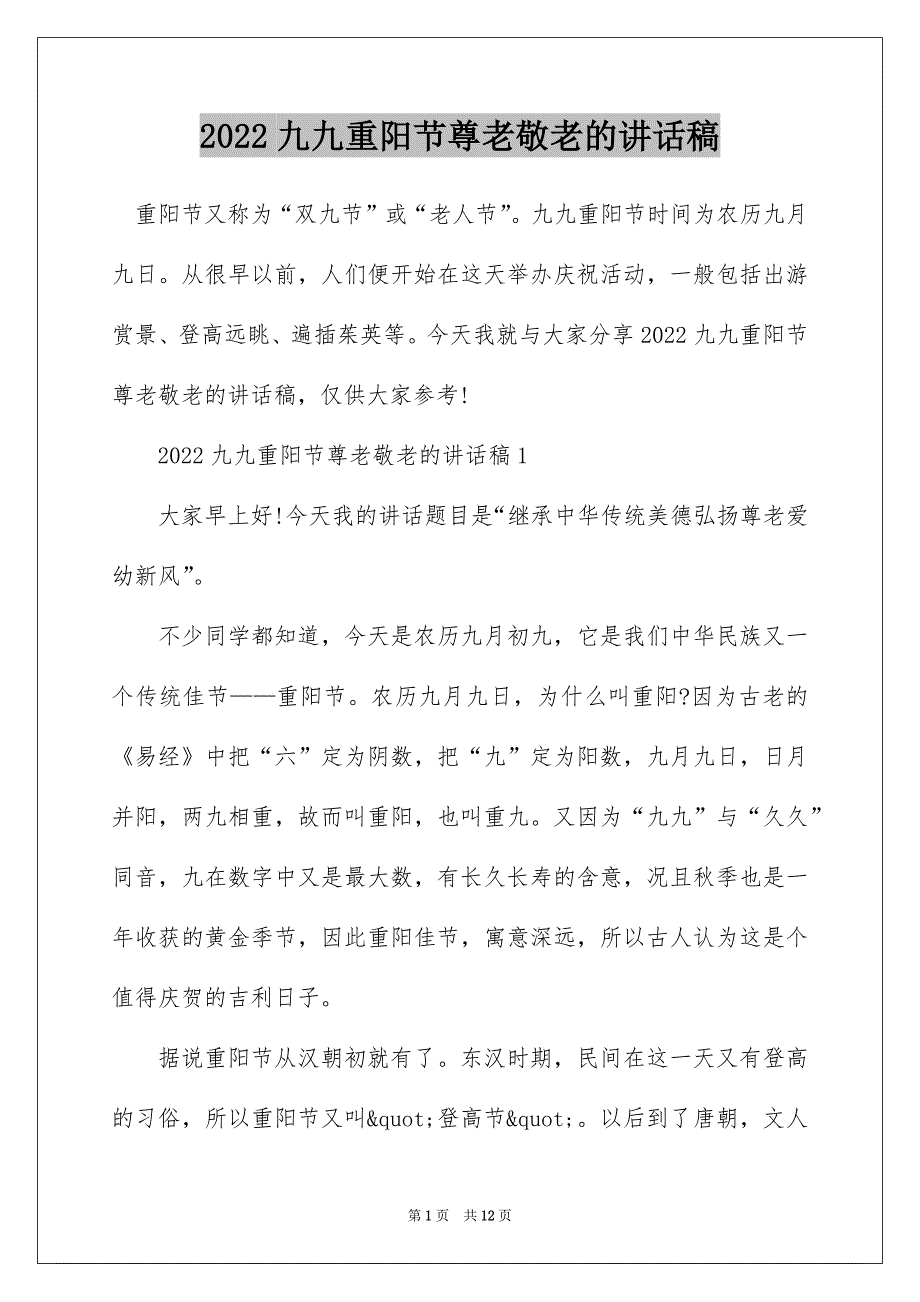 2022九九重阳节尊老敬老的讲话稿
重阳节又称为“双九节”或“老人节”。九九重阳节时间为农历九月
九日。从很早以前，人们便开始在这天举办庆祝活动，一般包括出游
赏景、登高远眺、遍插茱萸等。今天我就与大家分享2022九九重阳节
尊老敬老的讲话稿，仅供大家参考!
2022九九重阳节尊老敬老的讲话稿1
大家早上好!今天我的讲话题目是“继承中华传统美德弘扬尊老爱
幼新风”。
不少同学都知道，今天是农历九月初九，它是我们中华民族又一
个传统佳节——重阳节。农历九月九日，为什么叫重阳?因为古老的
《易经》中把“六”定为阴数，把“九”定为阳数，九月九日，日月
并阳，两九相重，故而叫重阳，也叫重九。又因为“九九”与“久久”
同音，九在数字中又是最大数，有长久长寿的含意，况且秋季也是一
年收获的黄金季节，因此重阳佳节，寓意深远，所以古人认为这是个
值得庆贺的吉利日子。
据说重阳节从汉朝初就有了。东汉时期，民间在这一天又有登高
的习俗，所以重阳节又叫&quot;登高节&quot;。以后到了唐朝，文人
第 1 页 共 12 页